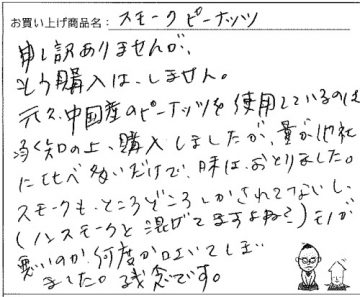 お買い上げ商品名：スモークピーナッツ
申し訳ありませんが、
もう購入は、しません。
元々、中国産のピーナッツを使用しているのは
承知の上、購入しましたが、量が他社
に比べ多いだけで、味は、おとりました。
スモークも、ところどころしかされてないし、
(ノンスモークと混ぜてますよね？)モノが
悪いのか、何度か吐いてしまい
ました。残念です。